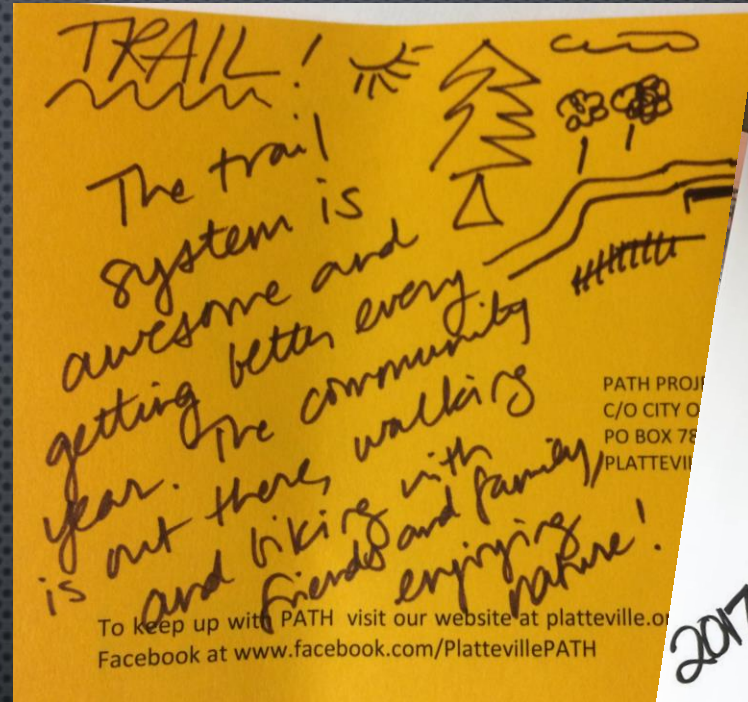 TRAIL!
The trail
system is
awesome and
getting better every
year. The community
is out there, walking
and biking with
friends and family,
enjoying
nature!
PATH PROJ
C/O CITY O
PO BOX 78
PLATTEVI
To keep up with PATH visit our website at platteville.or
Facebook at www.facebook.com/PlattevillePATH
2017